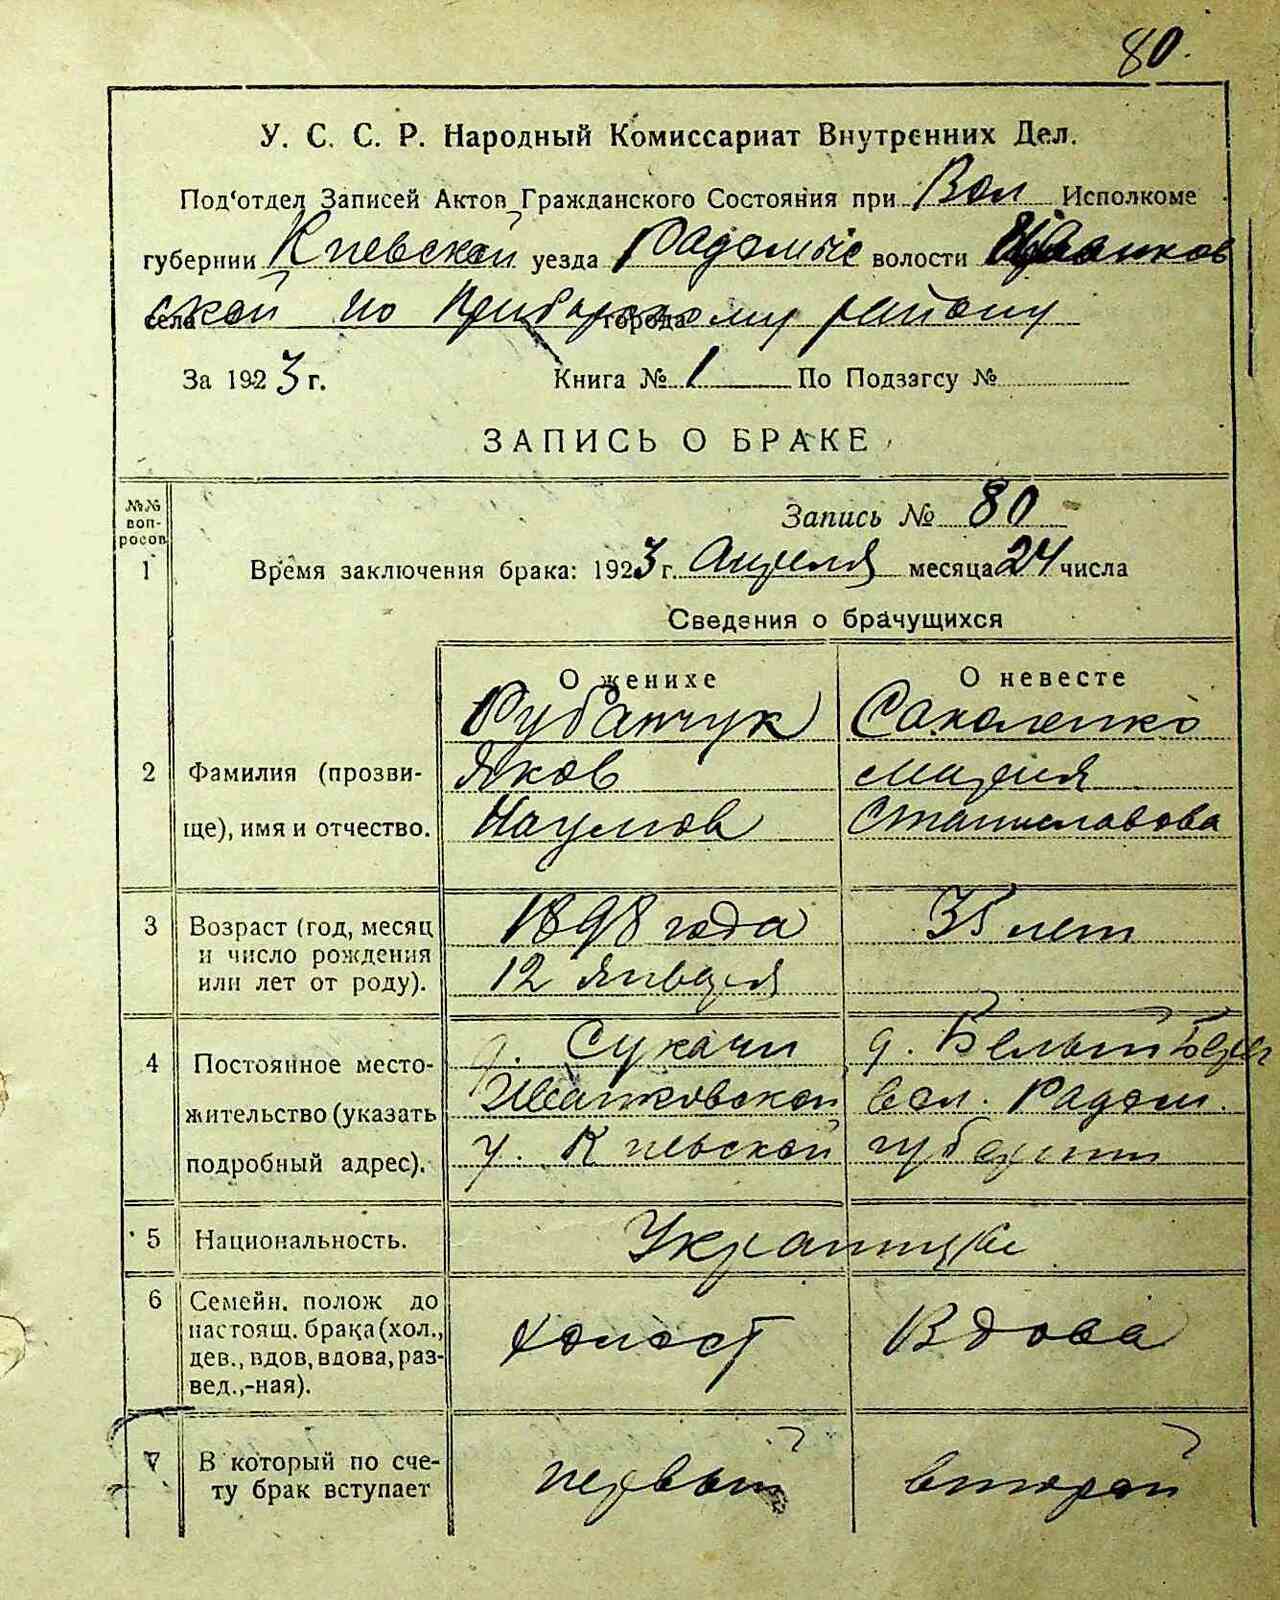 80.
У. С. С. Р. Народный Комиссариат Внутренних Дел.
Под'отдел Записей Актов Гражданского Состояния при Вол Исполкоме
губернии Киевской уезда Радомыс волости Иванков
села ской по города району
За 1923 г. Книга № 1 По Подзагсу №
ЗАПИСЬ О БРАКЕ
№№ воп-росов
Запись № 80
1 Время заключения брака: 1923 г. Апреля месяца 24 числа
Сведения о брачущихся
О женихе О невесте
Рубанчук Саколенко
2 Фамилия (прозви- Яков Мария
ще), имя и отчество. Наумов Станиславова
3 Возраст (год, месяц 1898 года 35 лет
и число рождения 12 января
или лет от роду).
4 Постоянное место- д. Сукачи д. Белый Берег
жительство (указать Иванковской вол. Радом.
подробный адрес). у. Киевской губернии
5 Национальность. Украинцы
6 Семейн. полож до
настоящ. брака (хол., холост Вдова
дев., вдов, вдова, раз-
вед.,-ная).
7 В который по сче- первый второй
ту брак вступает